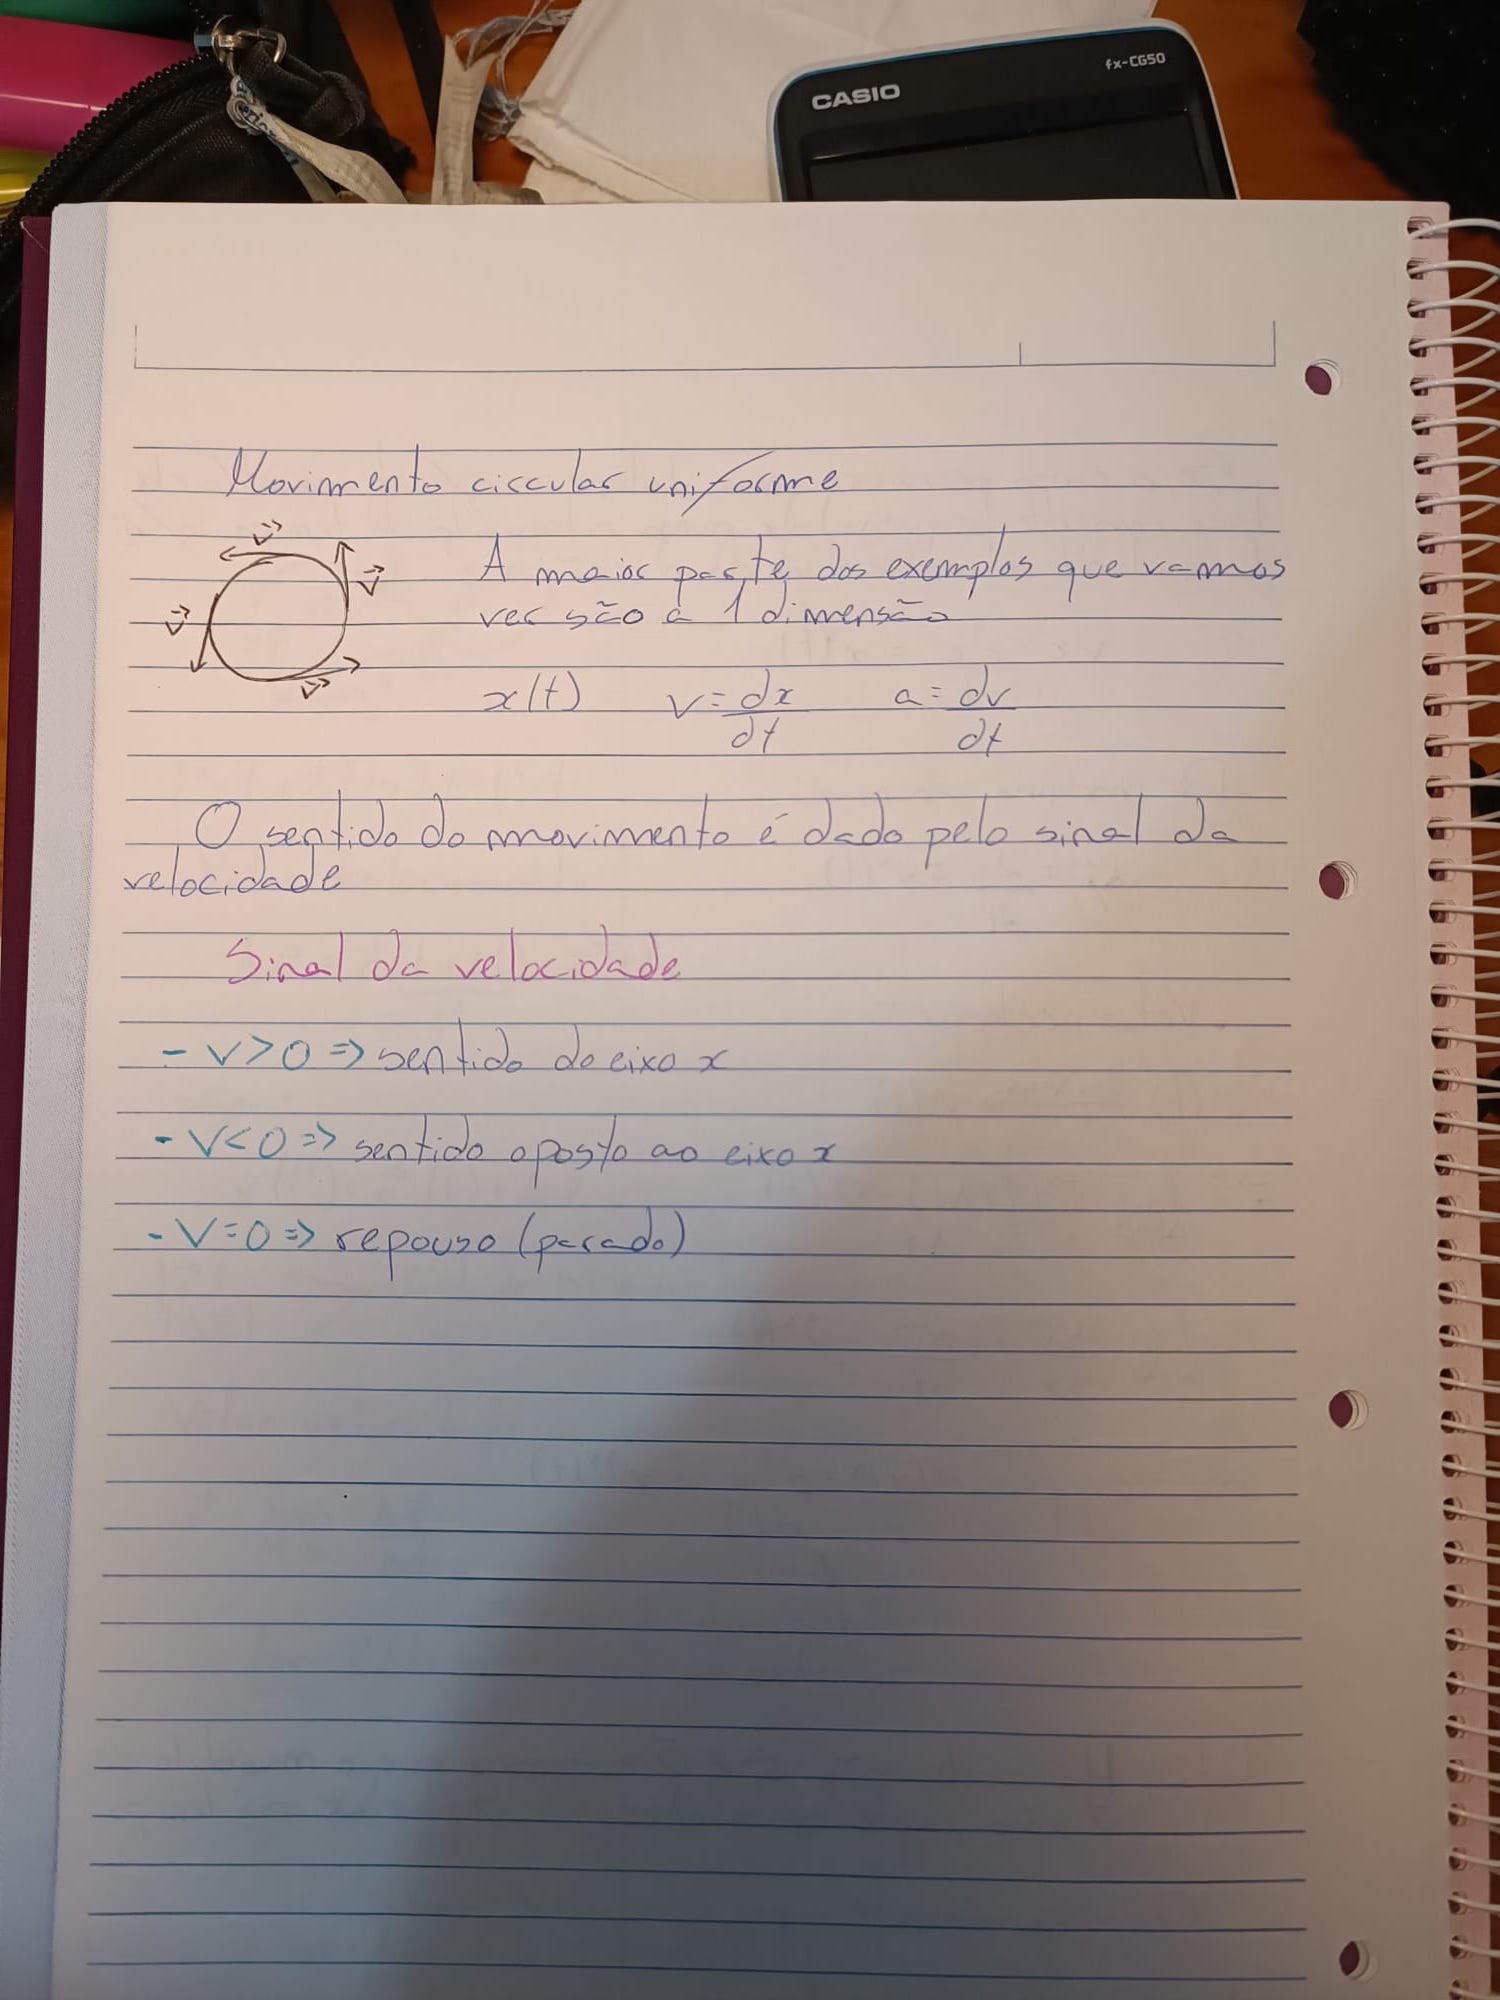 CASIO
fx-CG50
Movimento circular uniforme
v⃗
v⃗
v⃗
v⃗
A maior parte dos exemplos que vamos
ver são a 1 dimensão
x(t) v=dx/dt a=dv/dt
O sentido do movimento é dado pelo sinal da
velocidade
Sinal da velocidade
- v>0 => sentido do eixo x
- v<0 => sentido oposto ao eixo x
- v=0 => repouso (parado)